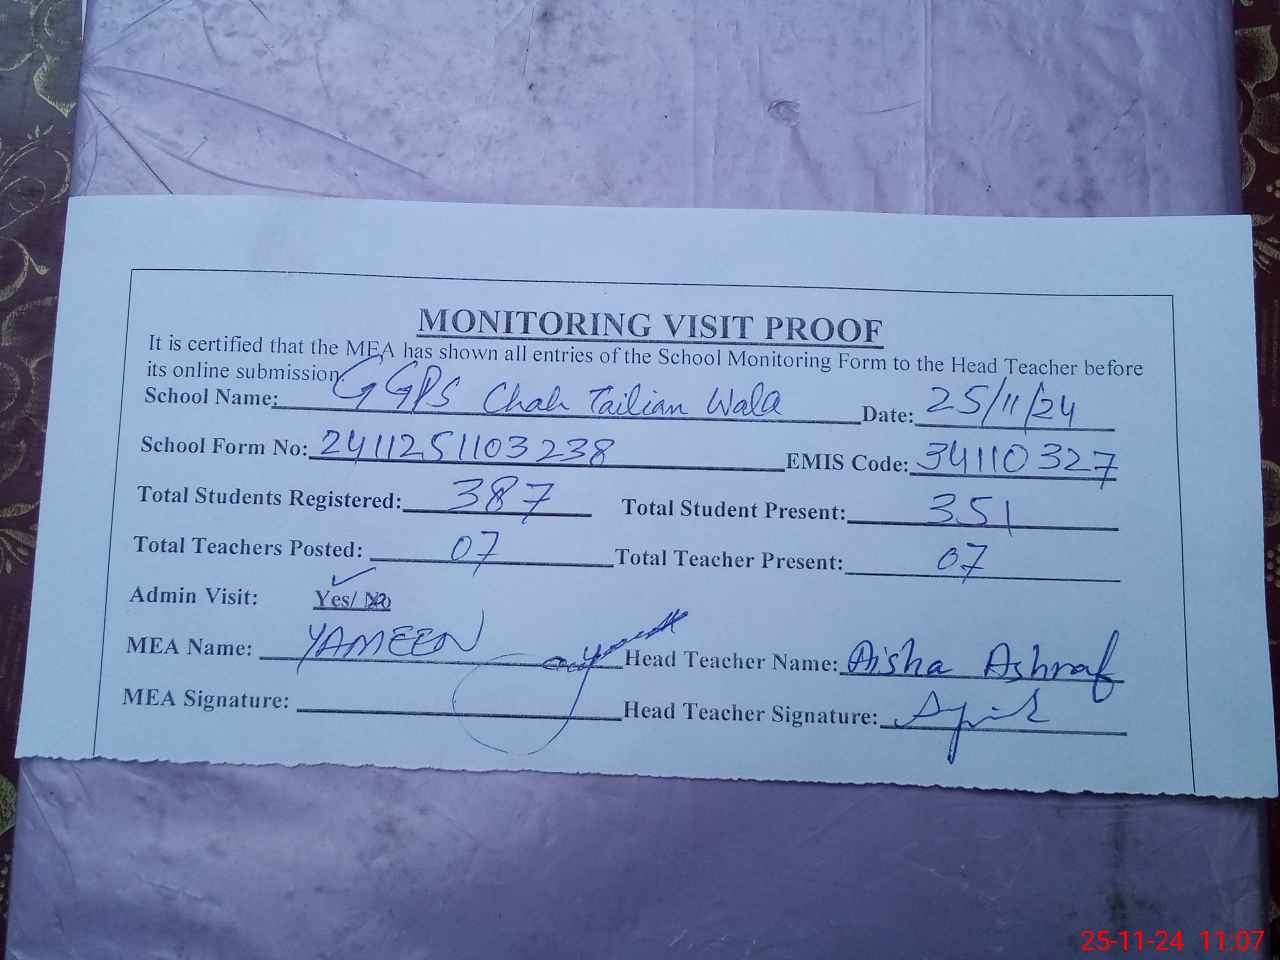 MONITORING VISIT PROOF
It is certified that the MEA has shown all entries of the School Monitoring Form to the Head Teacher before
its online submission
School Name: GGPS Chah Tailian Wala Date: 25/11/24
School Form No: 2411251103238 EMIS Code: 34110327
Total Students Registered: 387 Total Student Present: 351
Total Teachers Posted: 07 Total Teacher Present: 07
Admin Visit: Yes/ No
MEA Name: YAMEEN Head Teacher Name: Aisha Ashraf
MEA Signature: Head Teacher Signature:
25-11-24 11:07